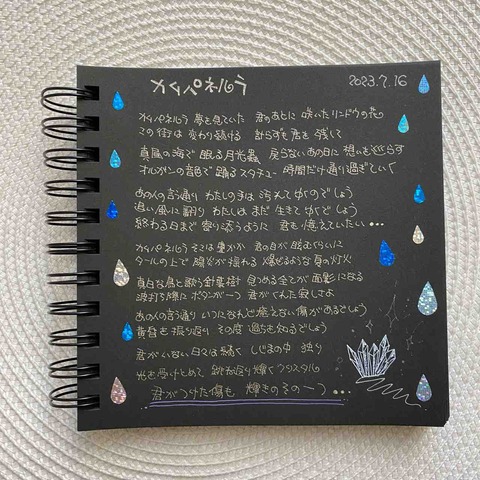 カムパネルラ
2023.7.16
カムパネルラ 夢を見ていた 君のあとに 咲いたリンドウの花
この街は 変わり続ける 計らずも 君を 残して
真昼の海で 眠る月光蟲 戻らないあの日に 想いを巡らす
オルガンの音色で 踊るスタチュー 時間だけ通り過ぎていく
あの人の言う通り わたしの手は 汚れてゆくのでしょう
追い風に翻り わたしは まだ 生きてゆくでしょう
終わる日まで 寄り添うように 君を 憶えていたい…
カムパネルラ そこは豊かか 君の目が 眩むくらいに
タールの上で 陽炎が揺れる 爆ぜるような 夏の灯火
真白な鳥と歌う針葉樹 見つめる全てが 面影になる
波打ち際に ボタンが一つ 君がくれた寂しさよ
あの人の言う通り いつになれど癒えない傷があるでしょう
黄昏を振り返り その度 過ちを知るでしょう
君がいない日々は続く しじまの中 独り
光を受けとめて 跳ね返り輝くクリスタル
君がつけた傷も 輝きのその一つ…